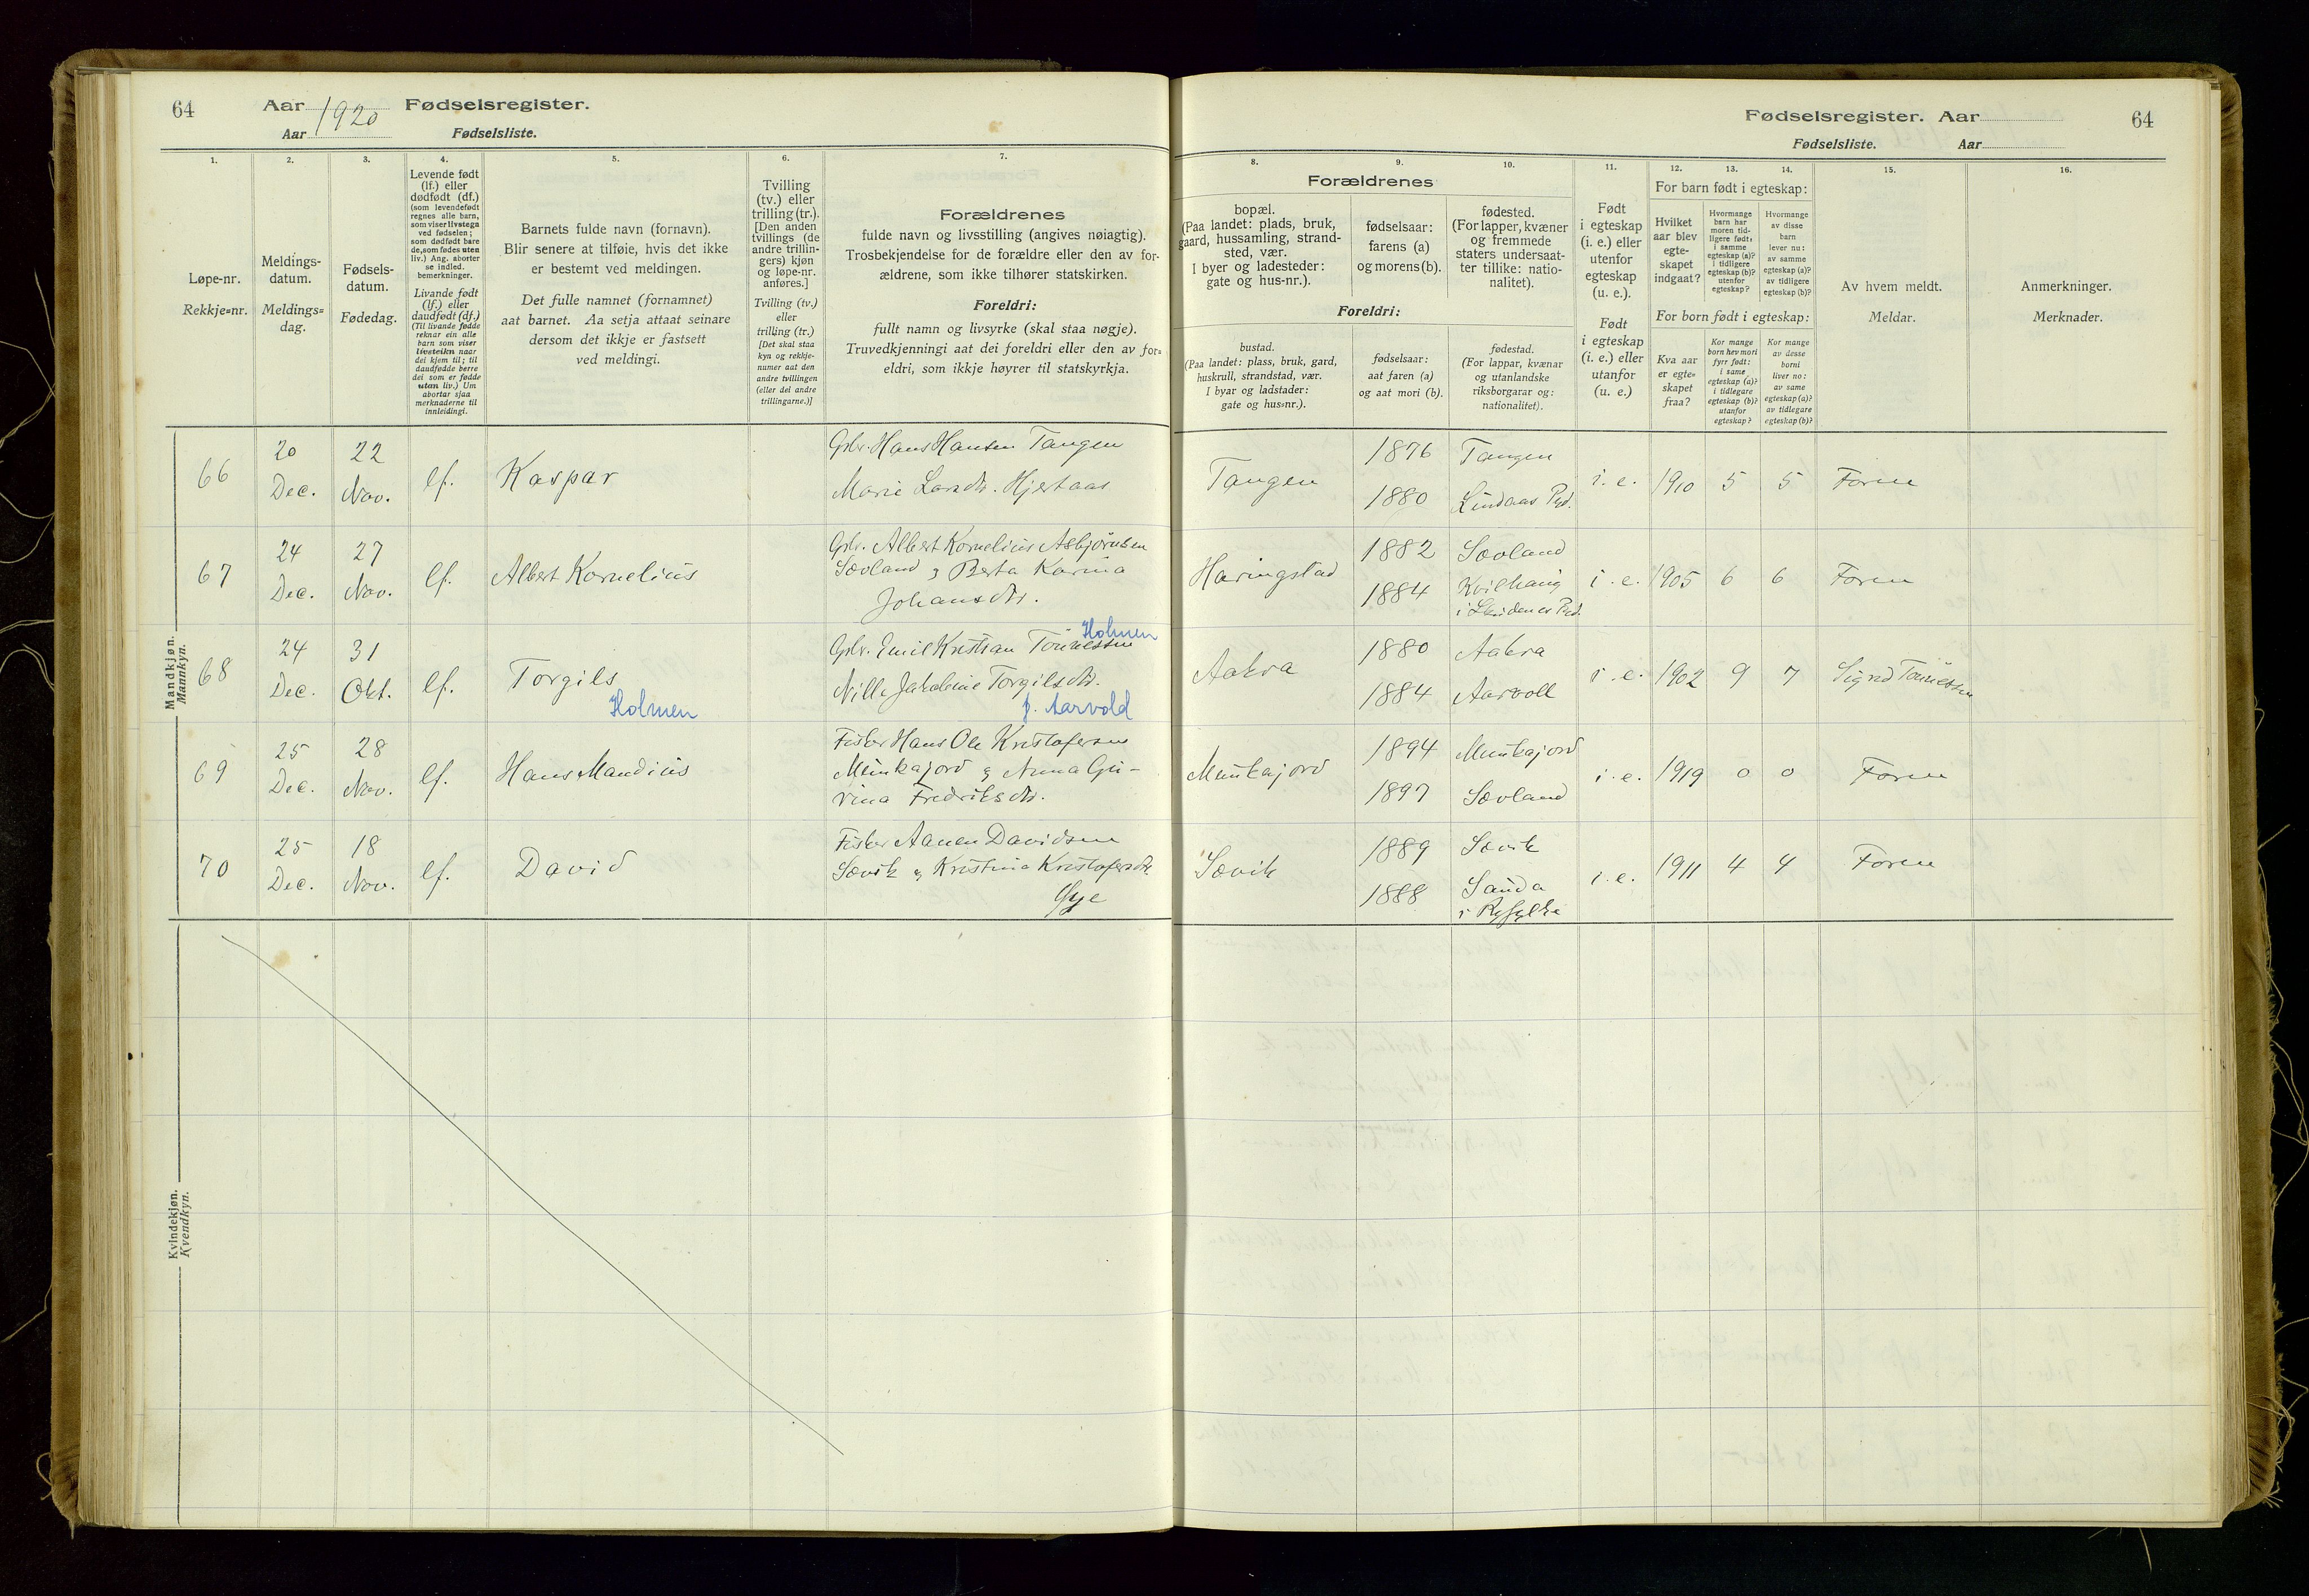 64 Aar 1920 Fødselsregister.
Aar Fødselsliste.
Fødselsregister. Aar 64
Fødselsliste. Aar
1. 2. 3. 4. 5. 6. 7.
Løpe-nr.
Rekkje=nr.
Meldings-
datum.
Meldings=
dag.
Fødsels-
datum.
Fødedag.
Levende født
(lf.) eller
dødfødt (df.)
(som levendefødt
regnes alle barn,
som viser livstegn
ved fødselen;
som dødfødt bare
de, som fødes uten
liv.) Ang. aborter
se indled.
bemerkninger.
Livande født
(lf.) eller
daudfødt (df.)
(Til livande fødde
reknar ein alle
barn som viser
livsteikn naar
dei kjem til; til
daudfødde berre
dei som er fødde
utan liv.) Um
abortar sjaa
merknaderne til
innleidingi.
Barnets fulde navn (fornavn).
Blir senere at tilføie, hvis det ikke
er bestemt ved meldingen.
Det fulle namnet (fornamnet)
aat barnet. Aa setja attaat seinare
dersom det ikkje er fastsett
ved meldingi.
Tvilling
(tv.) eller
trilling (tr.).
[Den anden
tvillings (de
andre trillin-
gers) kjøn
og løpe-nr.
anføres.]
Tvilling (tv.)
eller
trilling (tr.)
[Det skal staa
kyn og rekkje-
numer aat den
andre tvillingen
(eller dei andre
trillingarne.)]
Forældrenes
fulde navn og livsstilling (angives nøiagtig).
Trosbekjendelse for de forældre eller den av for-
ældrene, som ikke tilhører statskirken.
Foreldri:
fullt namn og livsyrke (skal staa nøgje).
Truvedkjenningi aat dei foreldri eller den av for=
eldri, som ikkje høyrer til statskyrkja.
8. 9. 10. 11. 12. 13. 14. 15. 16.
Forældrenes
bopæl.
(Paa landet: plads, bruk,
gaard, hussamling, strand-
sted, vær.
I byer og ladesteder:
gate og hus-nr.).
fødselsaar:
farens (a)
og morens (b).
fødested.
(For lapper, kvæner
og fremmede
staters undersaat-
ter tillike: natio-
nalitet).
Foreldri:
bustad.
(Paa landet: plass, bruk, gard,
huskrull, strandstad, vær.
I byar og ladstader:
gate og hus=nr.).
fødselsaar:
aat faren (a)
og aat mori (b).
fødestad.
(For lappar, kvænar
og utanlandske
riksborgarar og:
nationalitet).
Født
i egteskap
(i. e.) eller
utenfor
egteskap
(u. e.).
Født
i egteskap
(i. e.) eller
utanfor
(u. e.)
For barn født i egteskap:
Hvilket
aar blev
egte-
skapet
indgaat?
Hvormange
barn har
moren tid-
ligere født:
i samme
egteskap (a)?
i tidligere
egteskap (b)?
utenfor
egteskap?
Hvormange
av disse
barn
lever nu:
av samme
egteskap (a)?
av tidligere
egteskap (b)?
For born født i egteskap:
Kva aar
er egte-
skapet
fraa?
Kor mange
born hev mori
fyrr født:
i same
egteskap (a)?
i tidlegare
egteskap (b)?
utanfor
egteskap?
Kor mange
av desse
borni
liver no:
av same
egteskap (a)?
av tidlegare
egteskap (b)?
Av hvem meldt.
Meldar.
Anmerkninger.
Merknader.
Mandkjøn.
Mannkyn.
66 20 Dec. 22 Nov. lf. Kaspar
Gbr. Hans Hansen Tangen
Marie Larsdtr. Hjertaas
Tangen 1876 Tangen
1880 Lindaas Pgd.
i. e. 1910 5 5 Faren
67 24 Dec. 27 Nov. lf. Albert Kornelius
Gbr. Albert Kornelius Asbjørnsen
Sævland & Berta Karina
Johansdtr.
Haringstad 1882 Sævland
1884 Kvilhaug
i Skudenes Pgd.
i. e. 1905 6 6 Faren
68 24 Dec. 31 Okt. lf. Torgils
Holmen
Holmen
Gbr. Emil Kristian Tønnessen
Nille Jakobine Torgilsdtr.
f. Aarvold
Aakra 1880 Aakra
1884 Aarvoll
i. e. 1902 9 7 Sigrid Tønnessen
69 25 Dec. 28 Nov. lf. Hans Mandius
Fisker Hans Ole Kristofersen
Munkajord & Anna Gu-
rina Fredriksdtr.
Munkajord 1894 Munkajord
1897 Sævland
i. e. 1919 0 0 Faren
70 25 Dec. 18 Nov. lf. David
Fisker Aanen Davidsen
Sævik & Kristina Kristofersdtr.
Øye
Sævik 1889 Sævik
1888 Sauda
i Ryfylke
i. e. 1911 4 4 Faren
Kvindekjøn.
Kvendkyn.